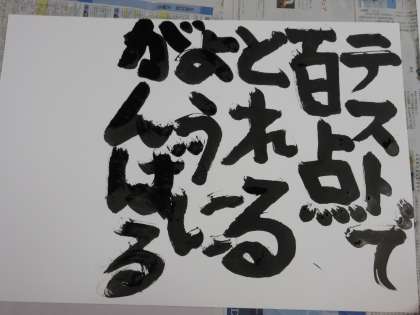 テストで
百点
とれる
ように
がんばる